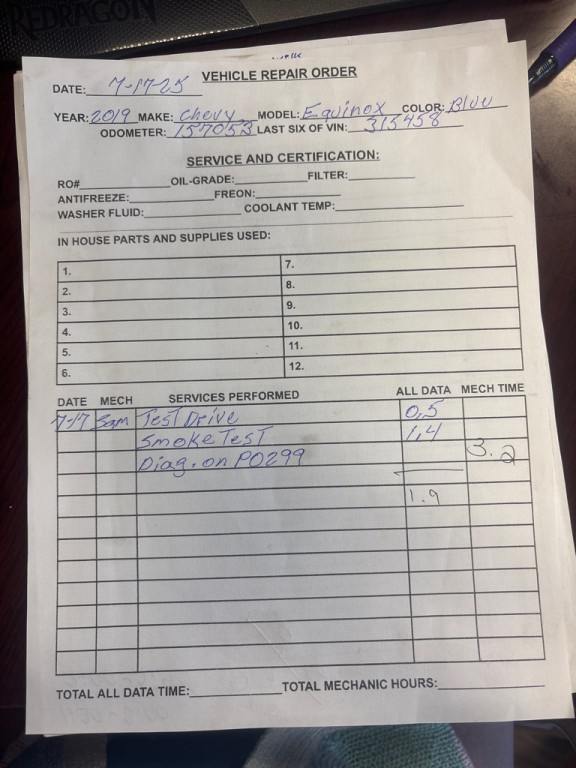 REDRAGON
VEHICLE REPAIR ORDER
DATE: 7-17-25
YEAR: 2019 MAKE: Chevy MODEL: Equinox COLOR: Blue
ODOMETER: 157053 LAST SIX OF VIN: 315458
SERVICE AND CERTIFICATION:
RO# OIL-GRADE: FILTER:
ANTIFREEZE: FREON:
WASHER FLUID: COOLANT TEMP:
IN HOUSE PARTS AND SUPPLIES USED:
1. 7.
2. 8.
3. 9.
4. 10.
5. 11.
6. 12.
DATE MECH SERVICES PERFORMED ALL DATA MECH TIME
7-17 Sam Test Drive 0,5
Smoke Test 1,4
Diag. on P0299 3.2
1.9
TOTAL ALL DATA TIME: TOTAL MECHANIC HOURS: